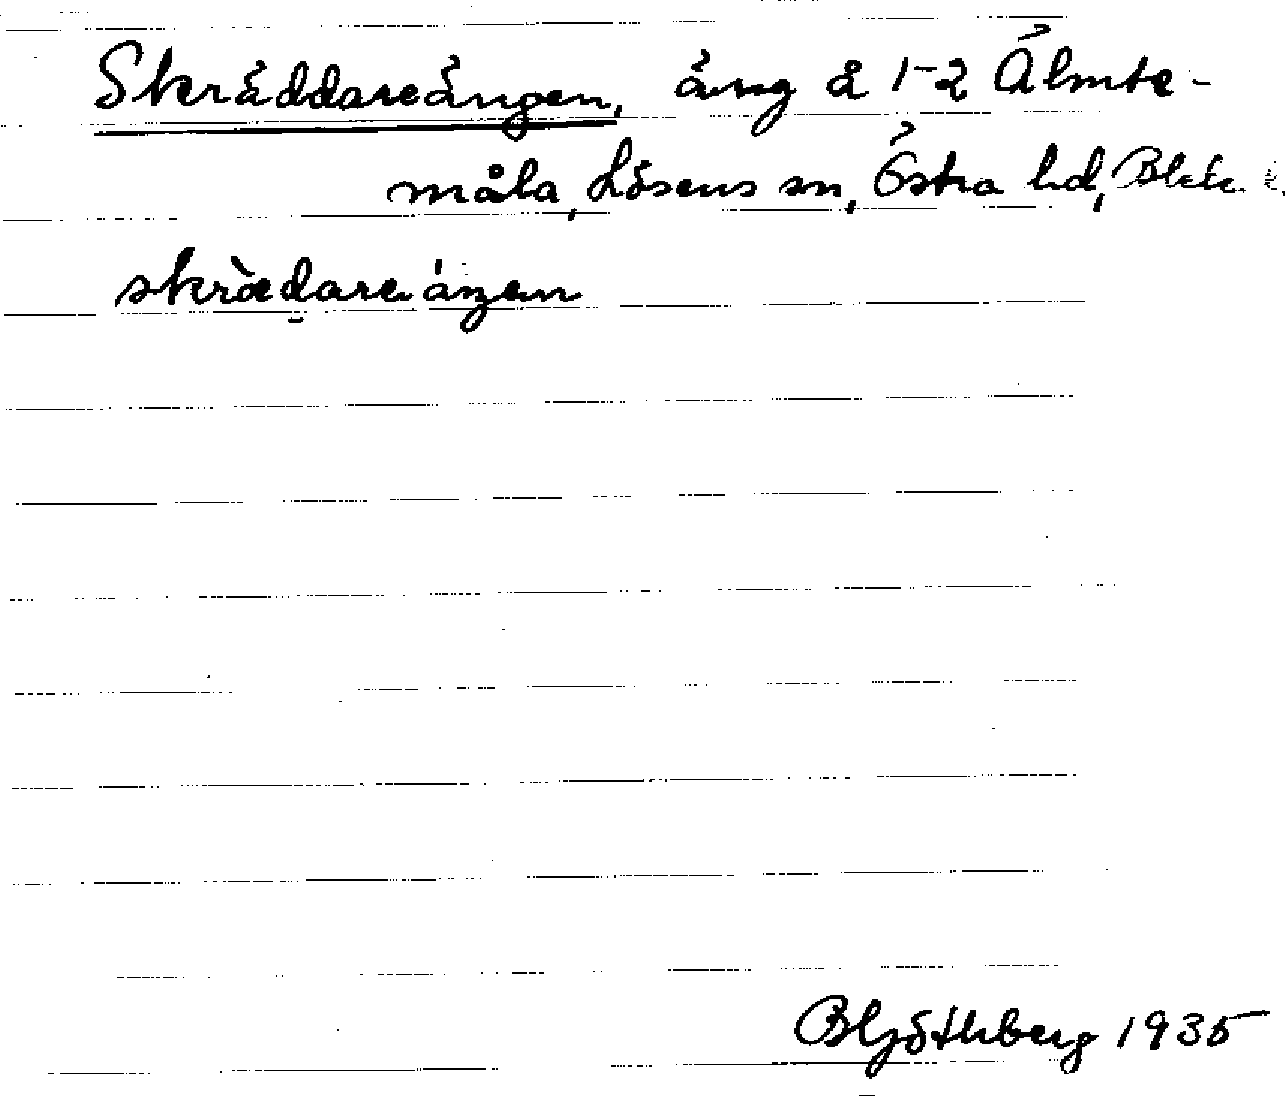 Skräddareängen, äng å 1-2 Älmte-
måla, Lösens sn, Östra hd, Blek.
skrædareáŋen
1935